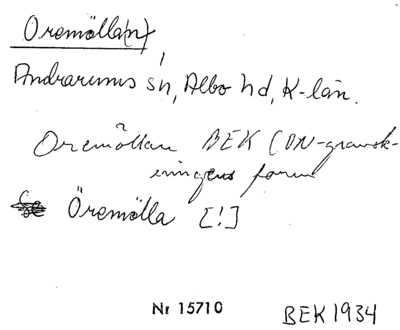 Oremölla(n),
Andrarums sn, Albo hd, K-län.
Oremöllan BEK (ON-gransk-
ningens form
Öremölla [!]
Nr 15710
BEK 1934